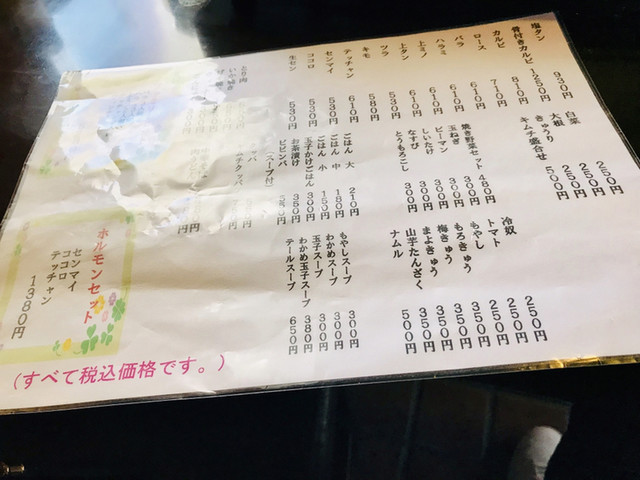 塩タン 930円
骨付きカルビ 1250円
カルビ 810円
ロース 710円
バラ 610円
ハラミ 610円
上ミノ 610円
上タン 610円
ツラ 530円
キモ 580円
テッチャン 610円
センマイ 530円
ココロ 530円
生セン 530円
とり肉
白菜 250円
大根 250円
きゅうり 250円
キムチ盛合せ 500円
焼き野菜セット 480円
玉ねぎ 300円
ピーマン 300円
しいたけ 300円
なすび 300円
とうもろこし 300円
ごはん 大 210円
ごはん 中 180円
ごはん 小 150円
玉子かけごはん 300円
お茶漬け 350円
ビビンバ
(スープ付)
冷奴 250円
トマト 250円
もやし 250円
もろきゅう 350円
梅きゅう 350円
まよきゅう 350円
山芋たんざく 350円
ナムル 500円
もやしスープ 300円
わかめスープ 300円
玉子スープ 300円
わかめ玉子スープ 380円
テールスープ 650円
ホルモンセット
センマイ
ココロ
テッチャン
1380円
(すべて税込価格です。)